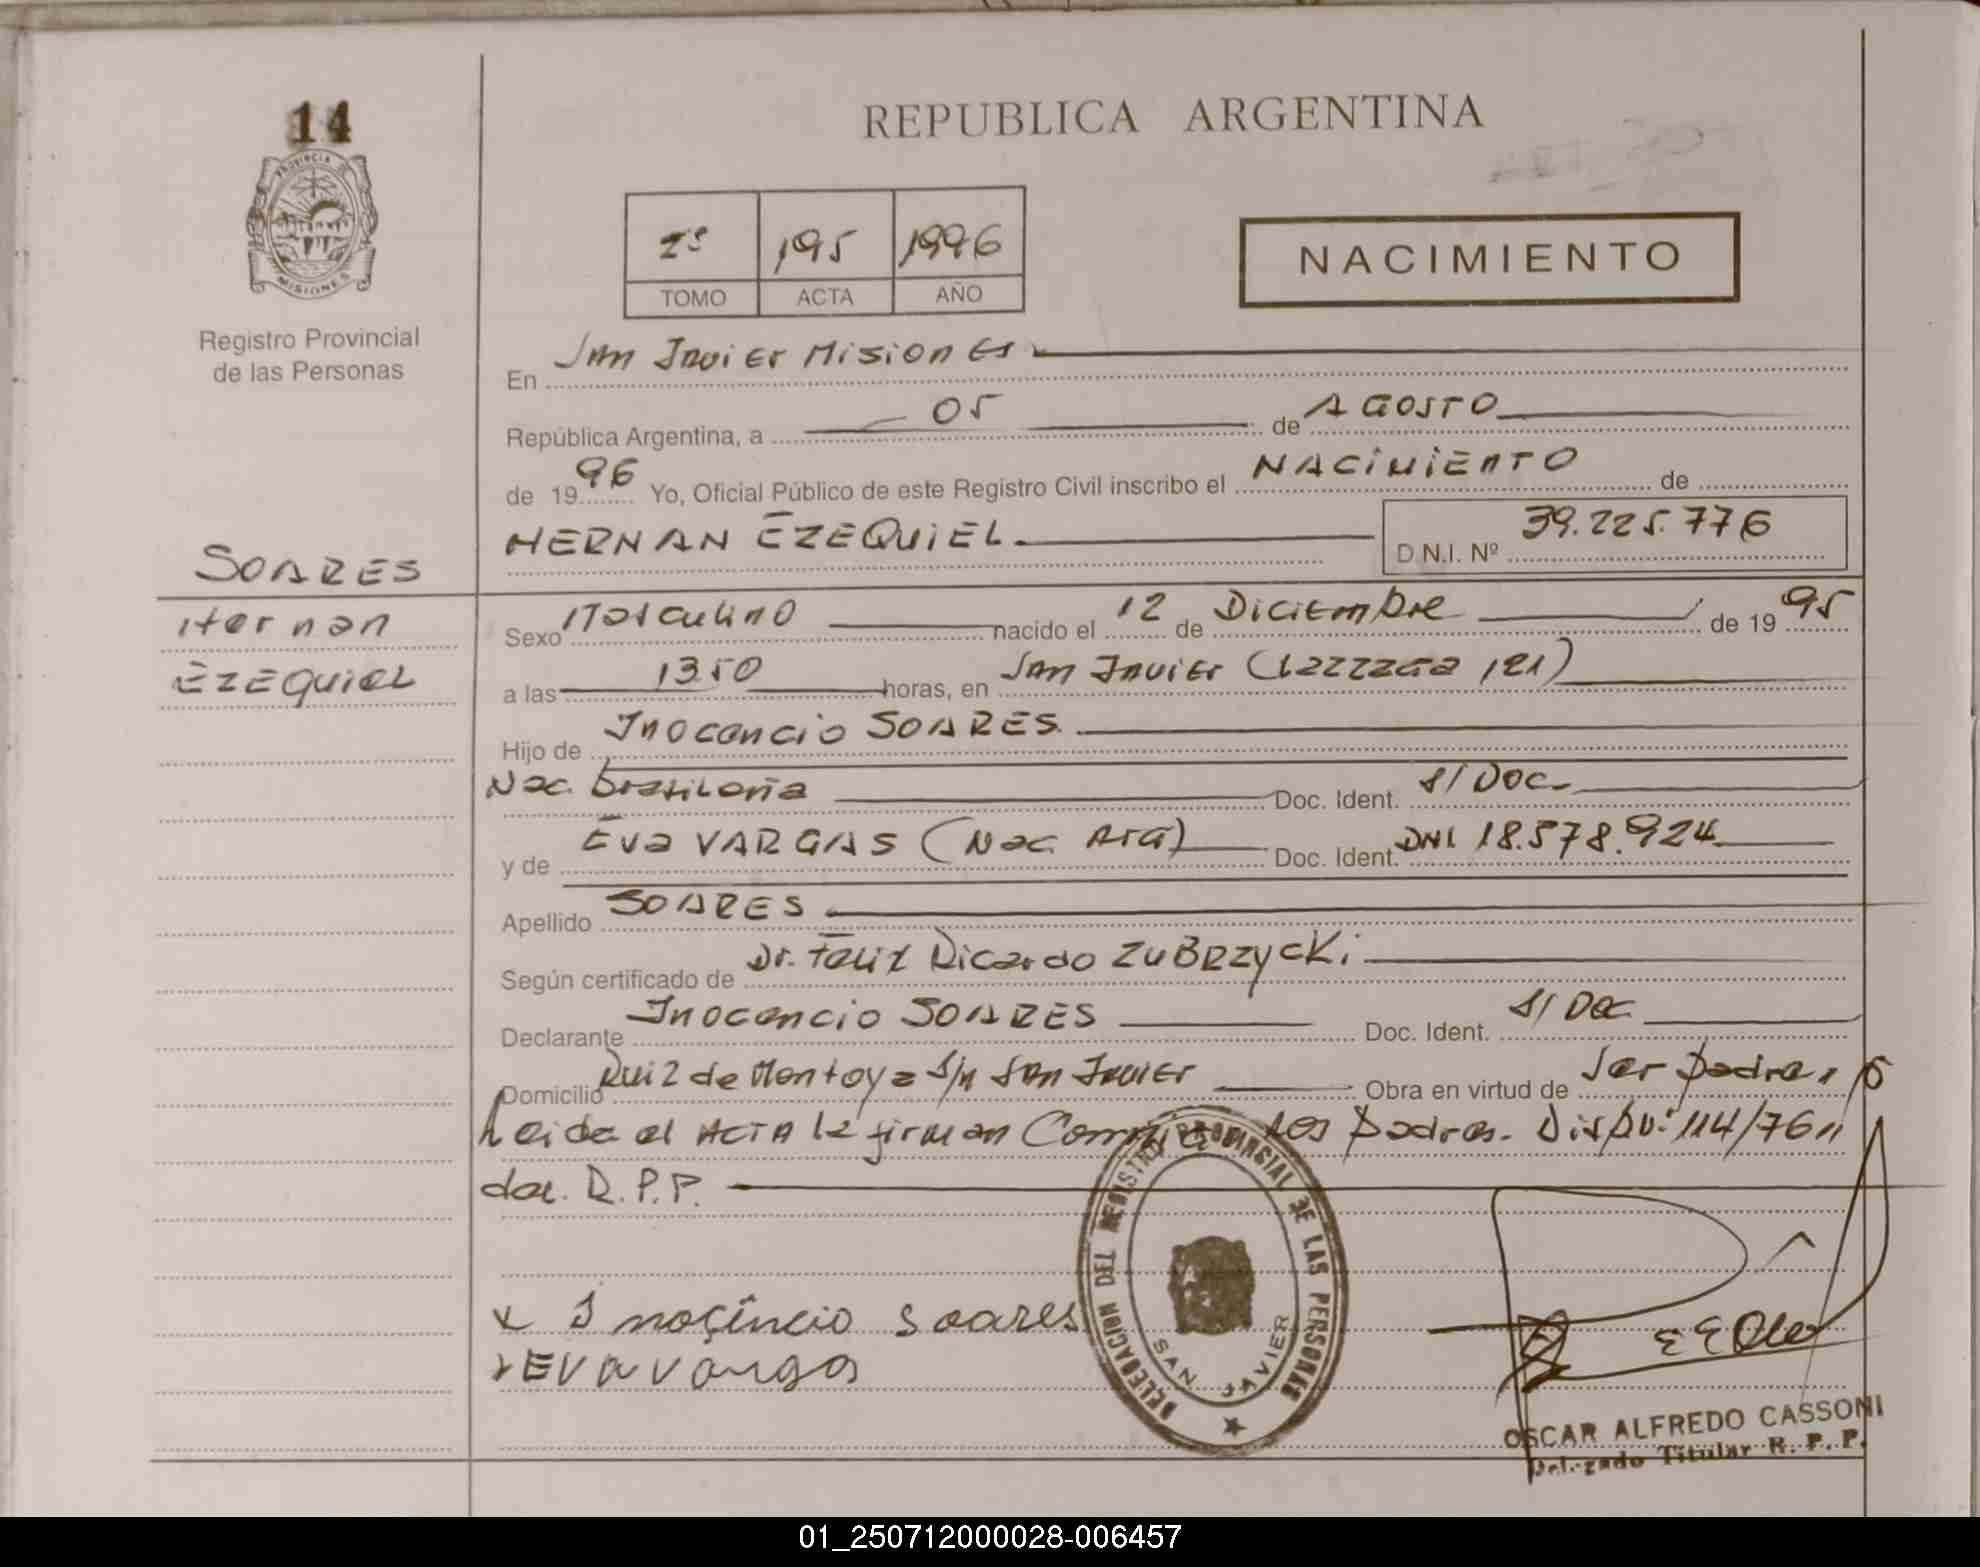 14
PROVINCIA
MISIONES
Registro Provincial
de las Personas
REPUBLICA ARGENTINA
2º 195 1996
TOMO ACTA AÑO
NACIMIENTO
En San Javier Misiones
República Argentina, a 05 de AGOSTO
de 1996 Yo, Oficial Público de este Registro Civil inscribo el NACIMIENTO de
HERNAN EZEQUIEL D.N.I. Nº 39.225.776
SOARES
Hernan
EZEQUIEL
Sexo Masculino nacido el 12 de Diciembre de 1995
a las 1350 horas, en San Javier (Lazzaga 121)
Hijo de Inocencio SOARES
Nac. brasileña Doc. Ident. S/Doc.
y de Eva VARGAS (Nac Arg) Doc. Ident. DNI 18.578.924
Apellido SOARES
Según certificado de Dr. Felix Ricardo ZUBRZYCKi
Declarante Inocencio SOARES Doc. Ident. S/Doc
Domicilio Ruiz de Montoya S/n San Javier Obra en virtud de Ser padre,
Leida el ACTA la firman los padres. Disp. 114/76
R.P.P.
x Inoçîncio Soares
Eva varga
DELEGACION DEL REGISTRO PROVINCIAL DE LAS PERSONAS
SAN JAVIER
OSCAR ALFREDO CASSONI
Delegado Titular R. P. P.
01_250712000028-006457